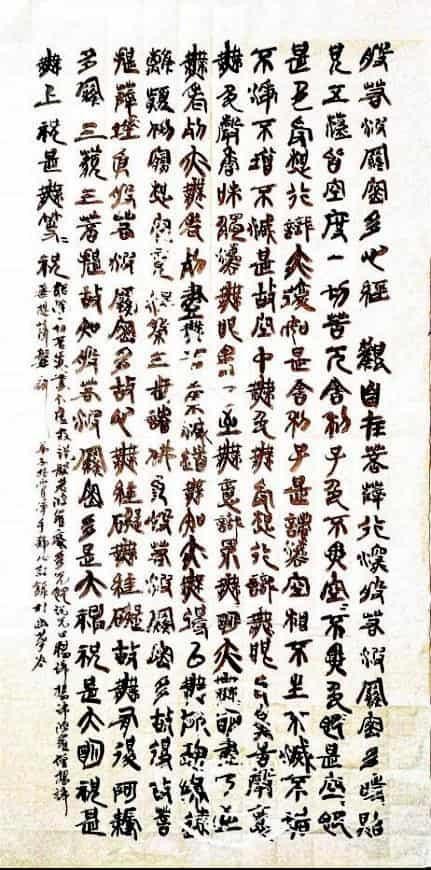 般若波羅蜜多心經 觀自在菩薩行深般若波羅蜜多時照
見五蘊皆空度一切苦厄舍利子色不異空〻不異色即是空〻即
是色受想行識亦復如是舍利子是諸法空相不生不滅不垢
不淨不增不減是故空中無色無受想行識無眼耳鼻舌身意
無色聲香味觸法無眼界乃至無意識界無無明亦無無明盡乃至
無老死亦無老死盡無苦集滅道無知亦無得以無所
離顛倒夢想究竟涅槃三世諸佛依般若波羅蜜多故得故菩
提薩埵依般若波羅蜜多故心無罣礙無罣礙故無有得阿耨
多羅三藐三菩提故知般若波羅蜜多是大神咒是大明咒是
無上咒是無等〻咒
能除一切苦真實不虛故說般若波羅蜜多咒即說咒曰揭諦揭諦波羅僧揭諦
菩提薩婆訶